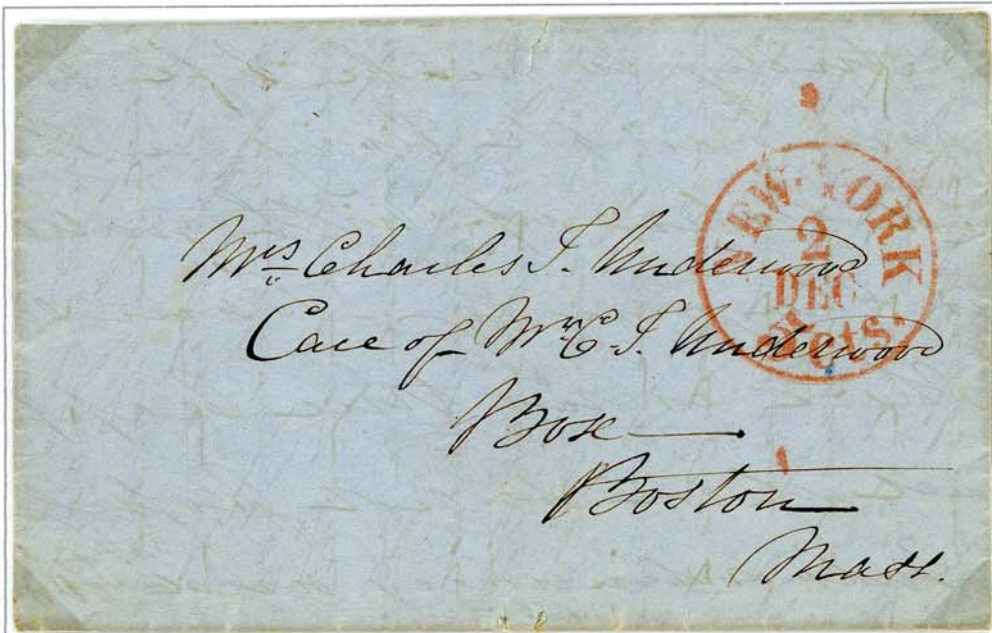 NEW-YORK
2
DEC
cts.
Mrs Charles F. Underwood
Care of Mr C. F. Underwood
Box —
Boston
Mass.